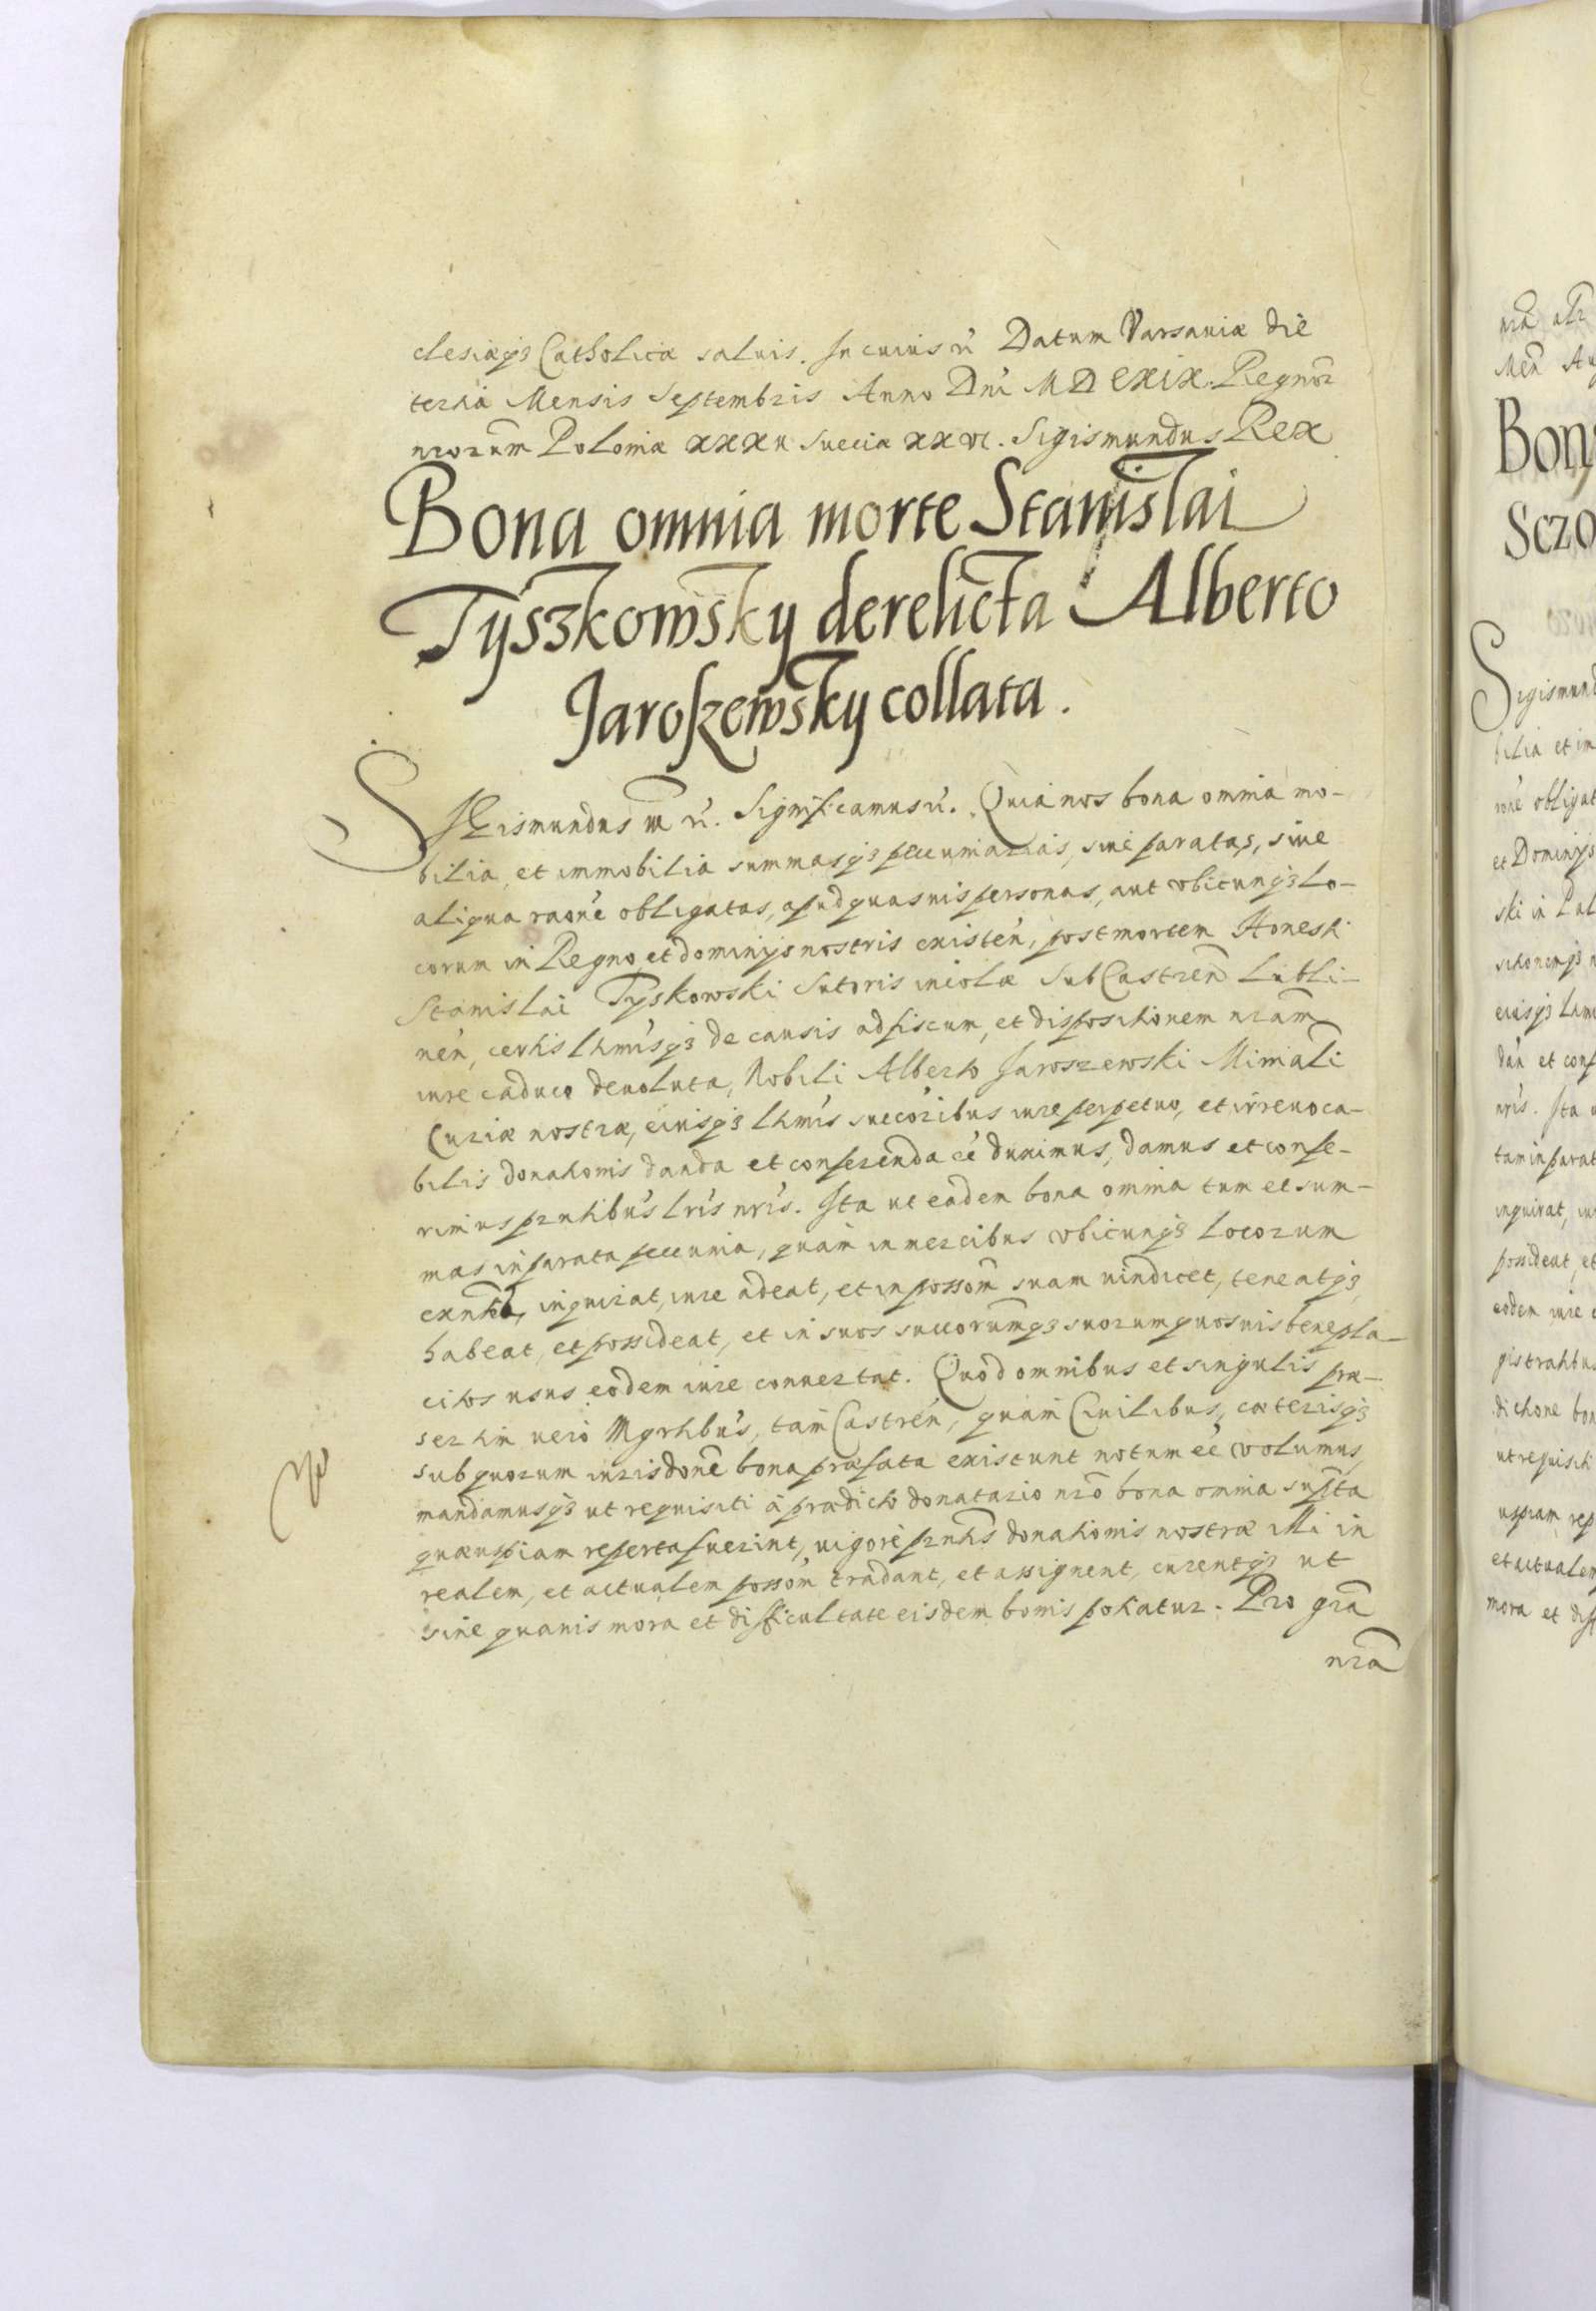 clesiæq3 Catholicæ saluis. In cuius rẽ Datum Varsauiæ die
tertia Mensis Septembris Anno Dni MDCXIX. Regnor̃
nrorum Poloniæ XXXII Sueciæ XXVI. Sigismundus Rex
Bona omnia morte Stanislai
Tyszkowsky derelicta Alberto
Jaroszewsky collata.
Sigismundus III rẽ. Significamus rẽ. Quia nos bona omnia mo-
bilia, et immobilia summasq3 pecuniarias, siue paratas, siue
aliqua raone obligatas, apud quasuis personas, aut vbicunq3 lo-
corum in Regno et dominijs nostris existeñ, post mortem Honesti
Stanislai Tyskowski Sutoris incolæ SubCastreñ Lubli-
neñ, certis lhmisq3 de causis ad fiscum, et dispositionem nram
iure caduco deuoluta, Nobili Alberto Jaroszewski Miriali
Curiæ nostræ, eiusq3 lhmis succoribus iure perpetuo, et irreuoca-
bilis donationis danda et conferenda eẽ duximus, damus et confe-
rimus pr̃ntibus lris nris. Ita ut eadem bona omnia tum et sum-
mas in parata pecunia, quam in mercibus vbicunq3 locorum
exñtes, inquirat, iure adeat, et in possom̃ suam uindicet, teneatq3,
habeat, et possideat, et in suos succorumq3 suorum quosuis benepla-
citos usus eodem iure conuertat. Quod omnibus et singulis præ-
sertim uero Mgrtibus, tam Castreñ, quam Ciuilibus, cæterisq3
sub quorum iurisdone bona præfata existunt notum eẽ volumus,
mandamusq3 ut requisiti à prædicto donatario nro bona omnia supta
quæuspiam reperta fuerint, uigore pr̃ntis donationis nostræ illi in
realem, et actualem possom̃ tradant, et assignent, curentq3 ut
sine quauis mora et difficultate eisdem bonis potiatur. Pro gra
nra